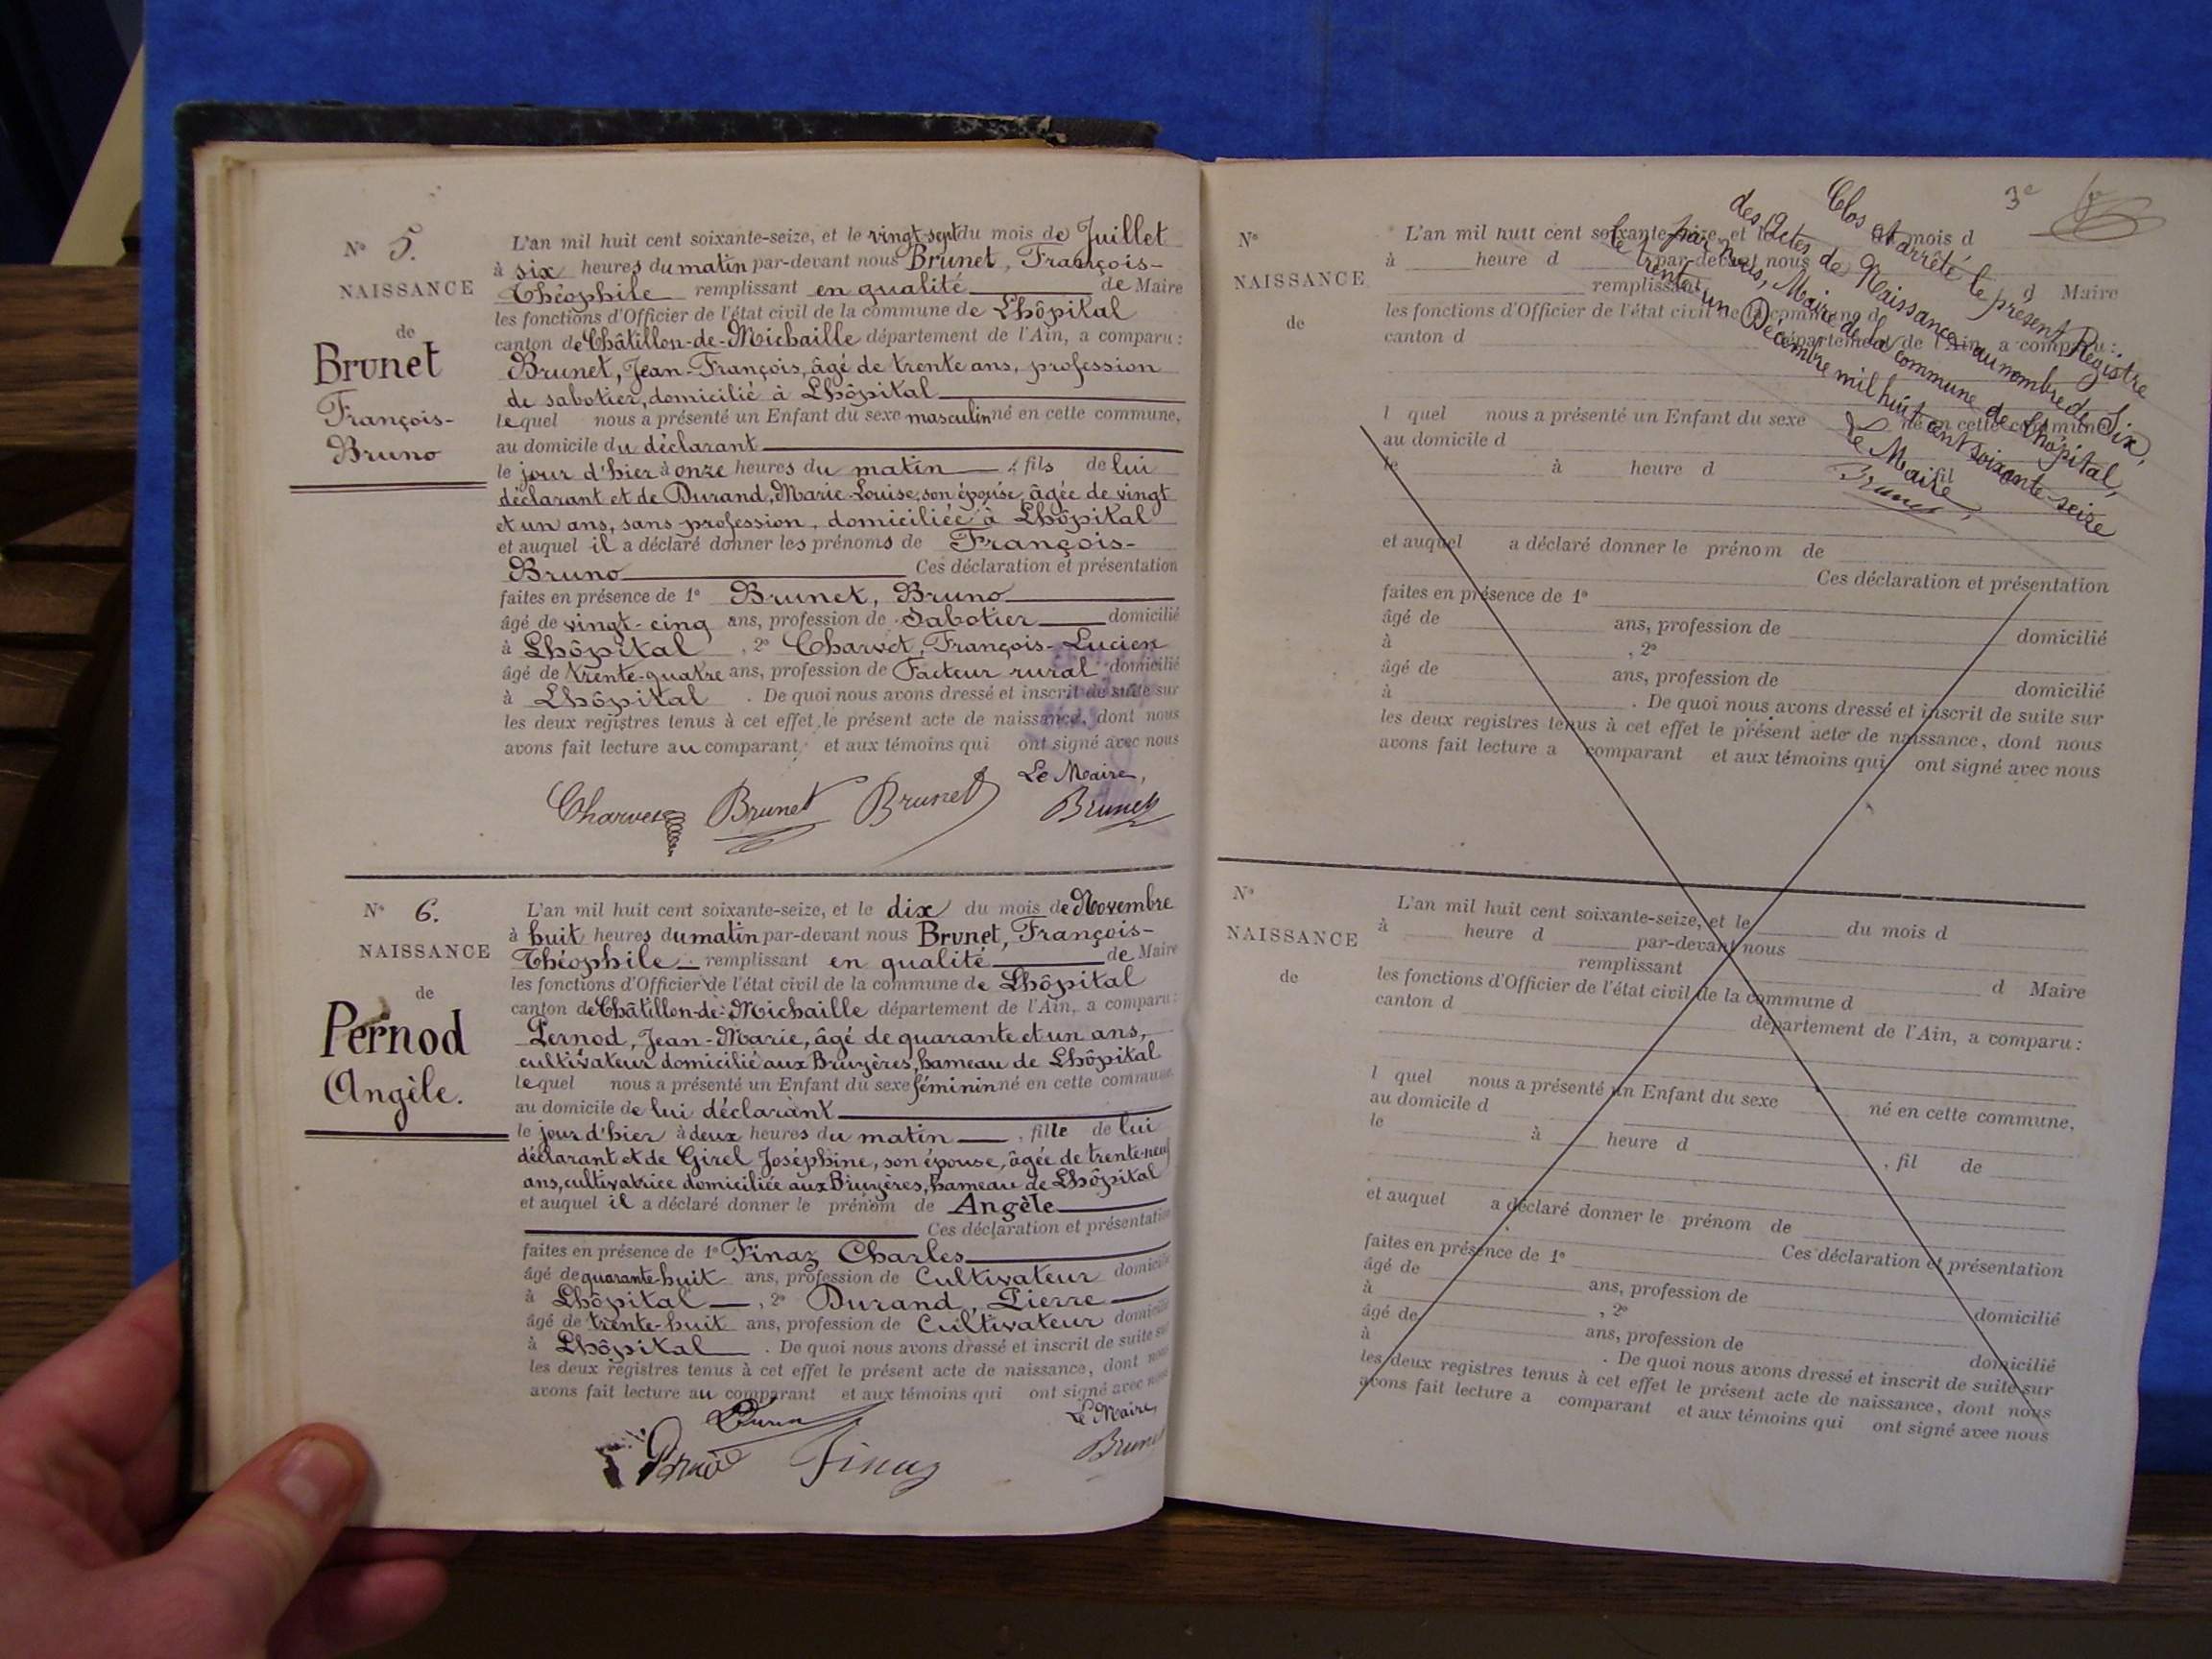 N° 5.
NAISSANCE
de
Brunet
François-
Bruno
L'an mil huit cent soixante-seize, et le vingt-sept du mois de Juillet
à six heures du matin par-devant nous Brunet, François-
Théophile remplissant en qualité de Maire
les fonctions d'Officier de l'état civil de la commune de Lhôpital
canton de Châtillon-de-Michaille département de l'Ain, a comparu :
Brunet, Jean-François, âgé de trente ans, profession
de sabotier, domicilié à Lhôpital
lequel nous a présenté un Enfant du sexe masculin né en cette commune,
au domicile du déclarant
le jour d'hier à onze heures du matin, fils de lui
déclarant et de Durand, Marie-Louise, son épouse, âgée de vingt
et un ans, sans profession, domiciliée à Lhôpital
et auquel il a déclaré donner les prénoms de François-
Bruno Ces déclaration et présentation
faites en présence de 1° Brunet, Bruno
âgé de vingt-cinq ans, profession de Sabotier domicilié
à Lhôpital, 2° Charvet, François-Lucien
âgé de trente-quatre ans, profession de Facteur rural domicilié
à Lhôpital. De quoi nous avons dressé et inscrit de suite sur
les deux registres tenus à cet effet le présent acte de naissance, dont nous
avons fait lecture au comparant et aux témoins qui ont signé avec nous
Le Maire,
Charvet Brunet Brunet Brunet
N° 6.
NAISSANCE
de
Pernod
Angèle.
L'an mil huit cent soixante-seize, et le dix du mois de Novembre
à huit heures du matin par-devant nous Brunet, François-
Théophile remplissant en qualité de Maire
les fonctions d'Officier de l'état civil de la commune de Lhôpital
canton de Châtillon-de-Michaille département de l'Ain, a comparu :
Pernod, Jean-Marie, âgé de quarante et un ans,
cultivateur domicilié aux Bruyères, hameau de Lhôpital
lequel nous a présenté un Enfant du sexe féminin né en cette commune
au domicile de lui déclarant
le jour d'hier à deux heures du matin, fille de lui
déclarant et de Girel Joséphine, son épouse, âgée de trente-neuf
ans, cultivatrice domiciliée aux Bruyères, hameau de Lhôpital
et auquel il a déclaré donner le prénom de Angèle
Ces déclaration et présentation
faites en présence de 1° Finaz Charles
âgé de quarante-huit ans, profession de Cultivateur domicilié
à Lhôpital, 2° Durand, Pierre
âgé de trente-huit ans, profession de Cultivateur domicilié
à Lhôpital. De quoi nous avons dressé et inscrit de suite sur
les deux registres tenus à cet effet le présent acte de naissance, dont nous
avons fait lecture au comparant et aux témoins qui ont signé avec nous
Le Maire,
Finaz Brunet
3e
Clos et arrêté le présent Registre
des Actes de Naissance au nombre de Six,
par nous, Maire de la commune de Lhôpital,
le trente-un Décembre mil huit cent soixante-seize
Le Maire,
Brunet
N°
NAISSANCE
de
L'an mil huit cent soixante-seize, et le du mois d
à heure d par-devant nous
remplissant d Maire
les fonctions d'Officier de l'état civil de la commune d
canton d département de l'Ain, a comparu :
l quel nous a présenté un Enfant du sexe né en cette commune
au domicile d
le à heure d fil
et auquel a déclaré donner le prénom de
Ces déclaration et présentation
faites en présence de 1°
âgé de ans, profession de domicilié
à , 2°
âgé de ans, profession de domicilié
à . De quoi nous avons dressé et inscrit de suite sur
les deux registres tenus à cet effet le présent acte de naissance, dont nous
avons fait lecture a comparant et aux témoins qui ont signé avec nous
N°
NAISSANCE
de
L'an mil huit cent soixante-seize, et le du mois d
à heure d par-devant nous
remplissant d Maire
les fonctions d'Officier de l'état civil de la commune d
canton d département de l'Ain, a comparu :
l quel nous a présenté un Enfant du sexe né en cette commune,
au domicile d
le à heure d , fil de
et auquel a déclaré donner le prénom de
Ces déclaration et présentation
faites en présence de 1°
âgé de ans, profession de domicilié
à , 2°
âgé de ans, profession de domicilié
à . De quoi nous avons dressé et inscrit de suite sur
les deux registres tenus à cet effet le présent acte de naissance, dont nous
avons fait lecture a comparant et aux témoins qui ont signé avec nous